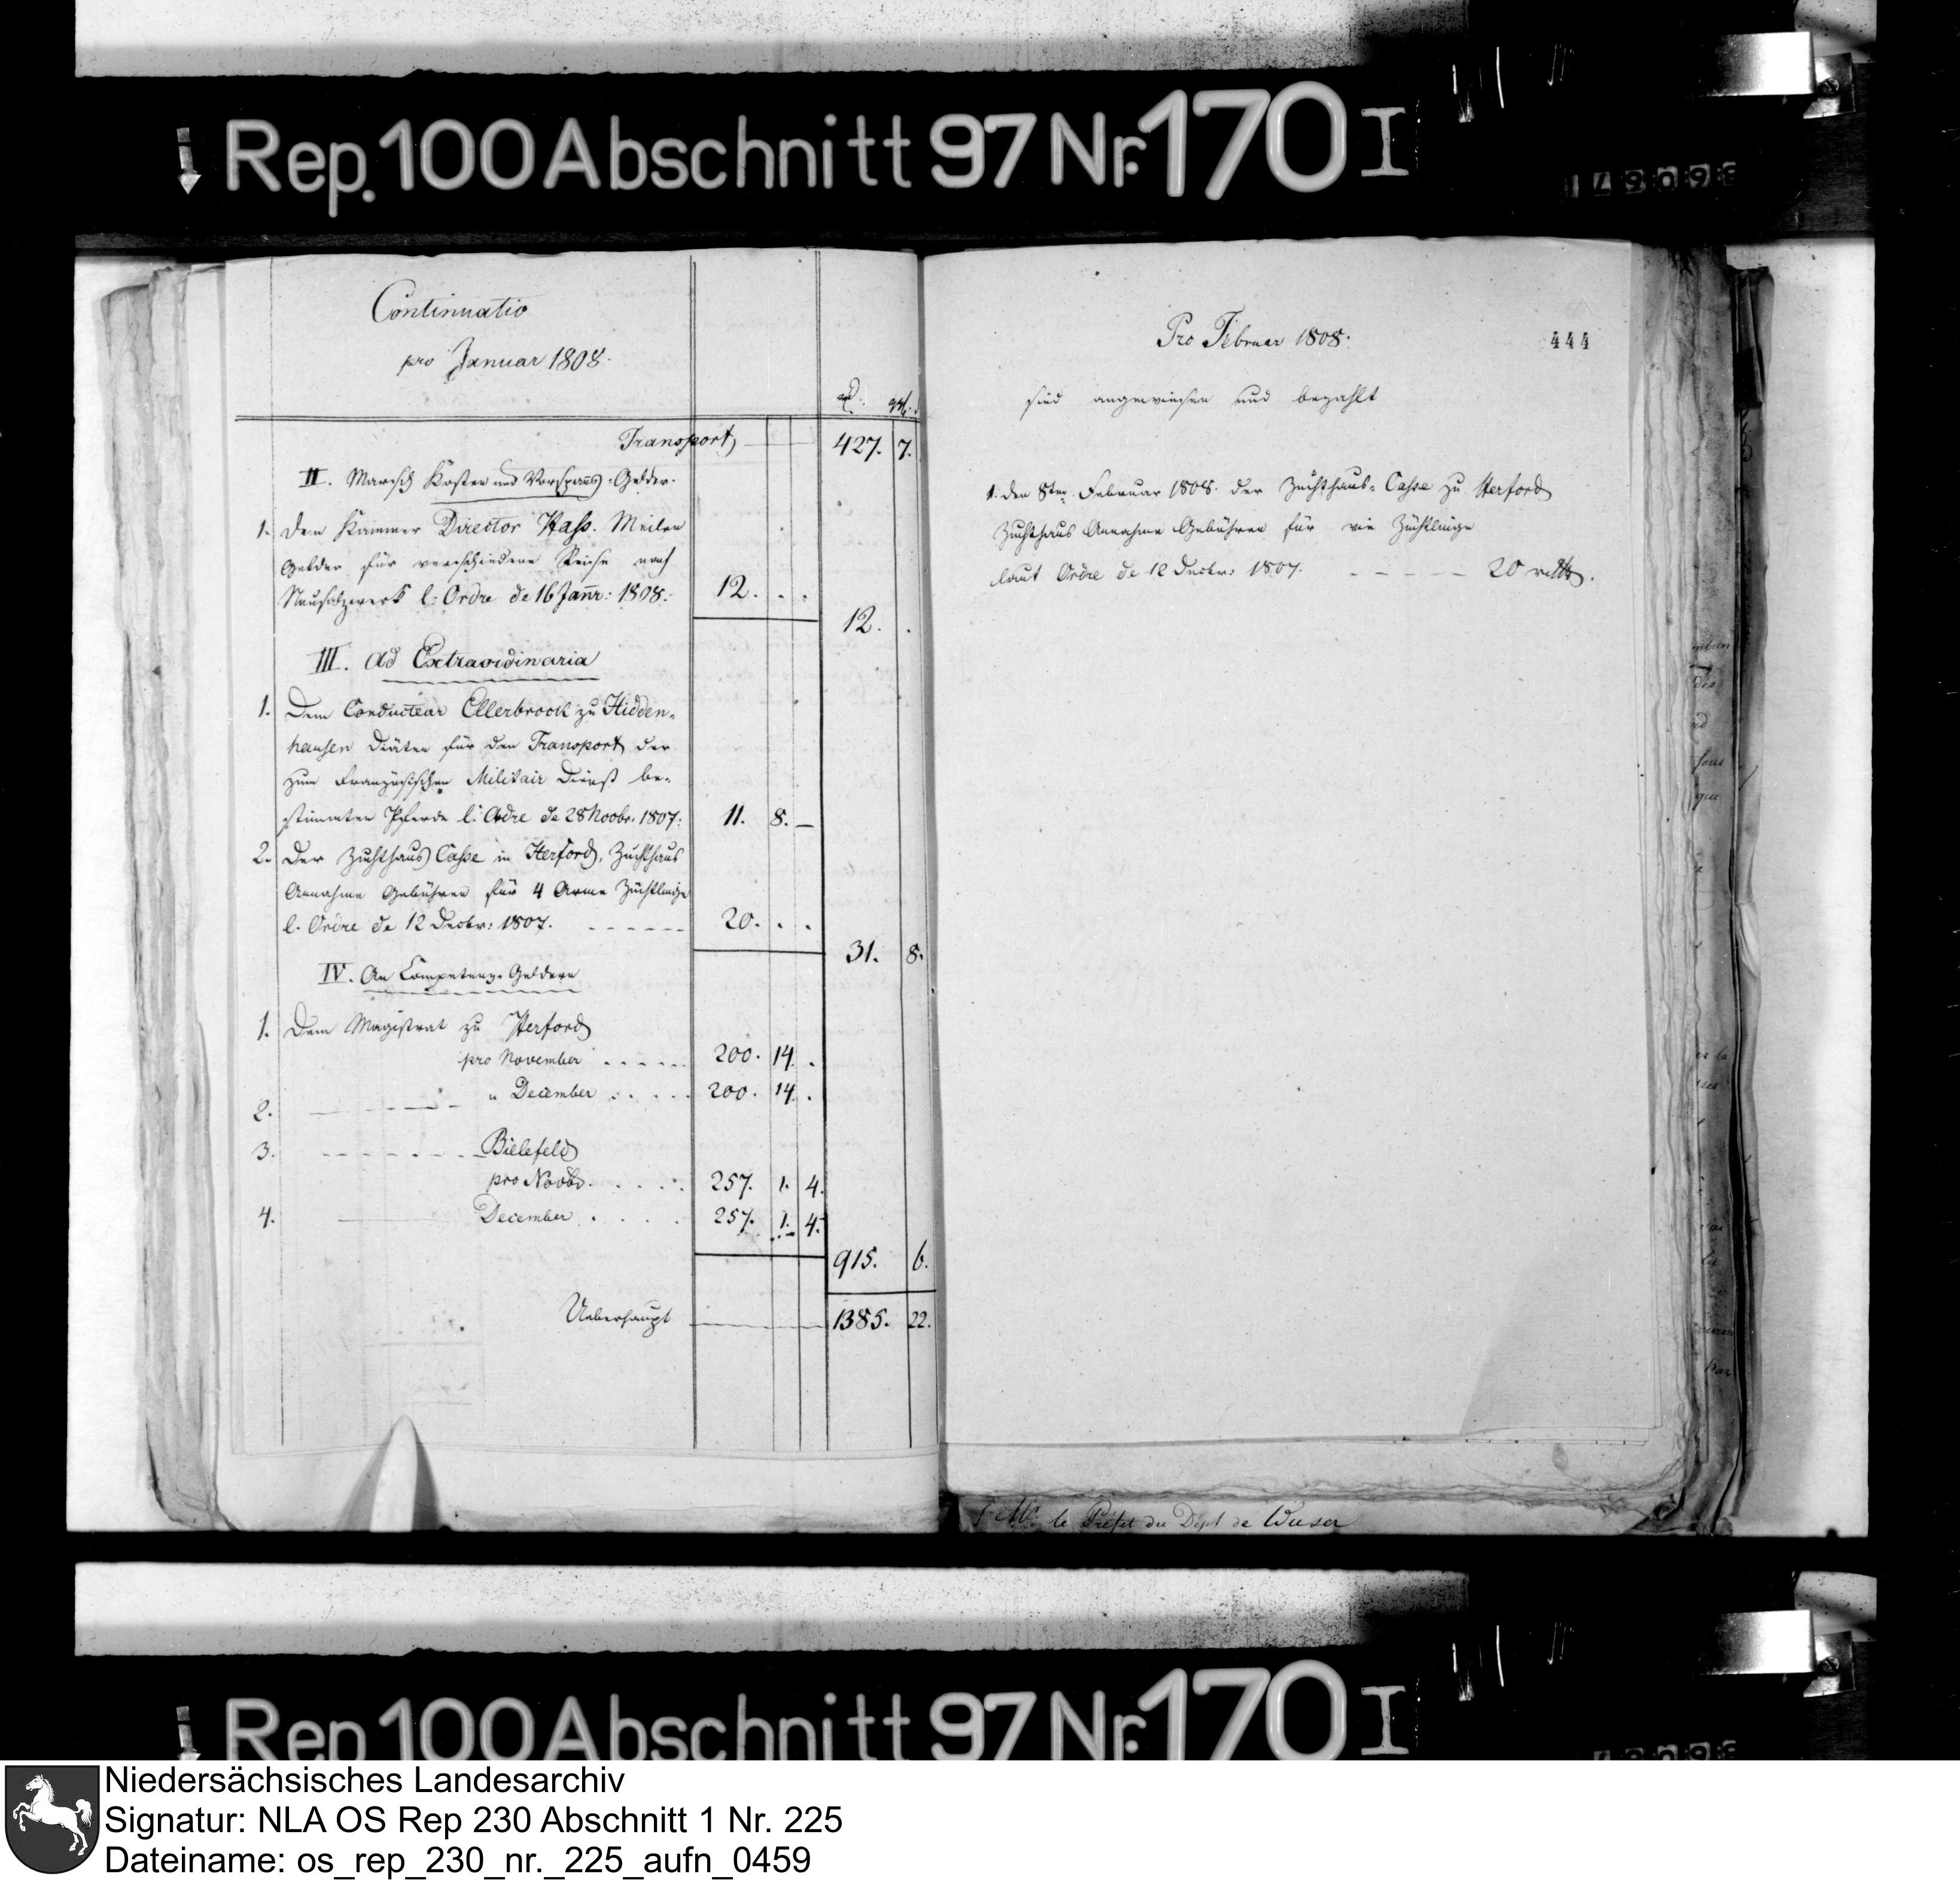 Rep. 100 Abschnitt 97 Nr. 170 I
Continuatio
pro Januar 1808.
Transport 427. 7.
II. Marsch Kosten und Vorspanns-Gelder.
1. Dem Kammer Director Hass. Meilen
Gelder für verschiedene Reisen nach
Neusalzwerk l: Ordre de 16 Janr: 1808: 12. . .
12. .
III. Ad Extraordinaria
1. Dem Conducteur Ellerbrock zu Hidden-
hausen Diäten für den Transport der
zum Französischen Militair Dienst be-
stimmten Pferde l: Ordre de 28 Novbr. 1807: 11. 8. —
2. Der Zuchthaus Casse in Herford, Zuchthaus
Annahme Gebühren für 4 Arme Züchtlinge
l. Ordre de 12 Decbr: 1807. 20. . .
31. 8.
IV. An Competenz-Geldern
1. Dem Magistrat zu Herford
pro November 200. 14. .
2. " December 200. 14. .
3. Bielefeld
pro Novbr. 257. 1. 4.
4. December 257. 1. 4.
915. 6.
Ueberhaupt 1385. 22.
Pro Februar 1808.
444
sind angewiesen und bezahlt
1. den 8ten Februar 1808. der Zuchthaus-Casse zu Herford
Zuchthaus Annahme Gebühren für vier Züchtlinge
laut Ordre de 12 Decbr: 1807. 20 rthlr.
le Préfet du Dépt de Weser
Rep. 100 Abschnitt 97 Nr. 170 I
Niedersächsisches Landesarchiv
Signatur: NLA OS Rep 230 Abschnitt 1 Nr. 225
Dateiname: os_rep_230_nr._225_aufn_0459